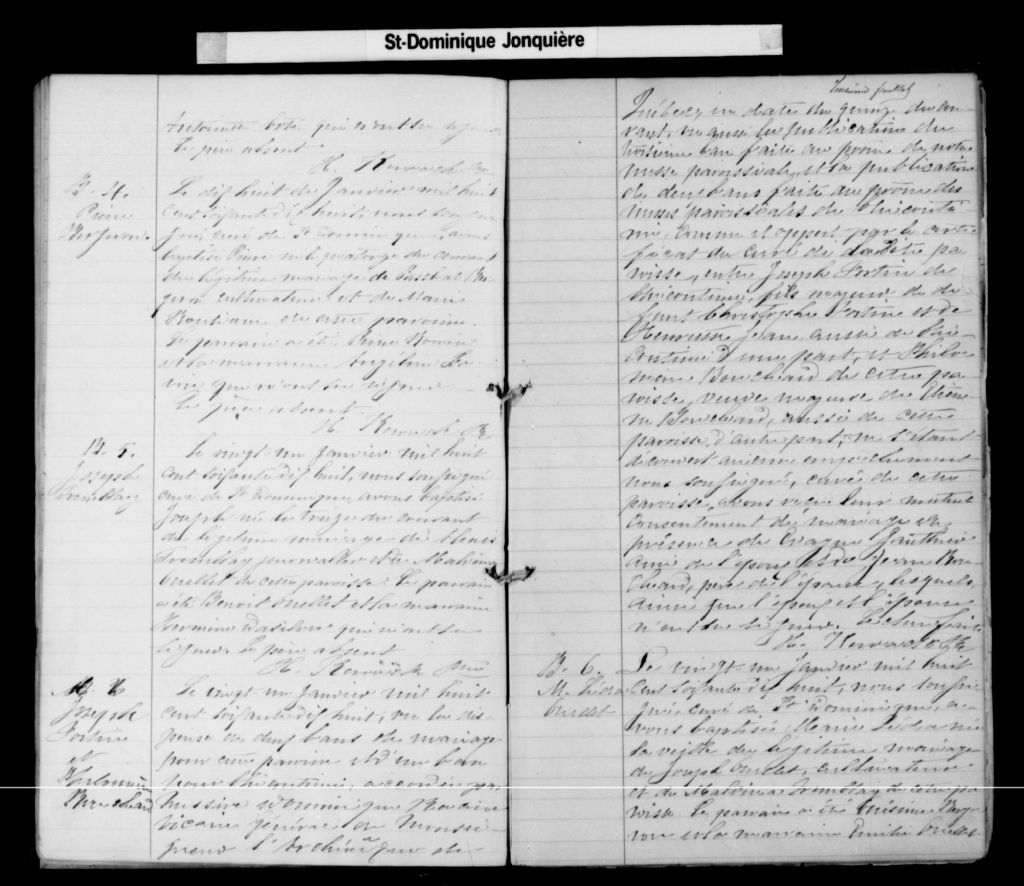 St-Dominique Jonquière
Antoinette Coté qui n'ont su signer
Le père absent
H. Kerouack Ptre
B. 4.
Pierre
Bergeron
Le dix huit de Janvier mil huit
cent soixante dix huit, nous sous
curé de St Dominique, avons
baptisé Pierre né le quatorze du courant
du légitime mariage de Paschal Ber
geron cultivateur et de Marie
de cette paroisse.
Le parrain a été
et la marraine Angéline
qui n'ont su signer
le père absent.
H. Kerouack Ptre
B. 5.
Joseph
Tremblay
Le vingt un Janvier mil huit
cent soixante dix huit, nous soussigné
curé de St Dominique, avons baptisé
Joseph né le treize du courant
du légitime mariage de
Tremblay journalier et de Malvina
Ouellet de cette paroisse. Le parrain
a été Benoit Ouellet et la marraine
Hermine Dasilva qui n'ont su
signer. Le père absent
H. Kerouack Ptre
M.
Joseph
Fortin
et
Philomène
Bouchard
Le vingt un Janvier mil huit
cent soixante dix huit, vu la dis-
pense de deux bans de mariage
pour cette paroisse et d'un ban
pour Chicoutimi, accordée par
messire Dominique Racine
vicaire général de Monsei-
gneur l'Archévêque de
feuillet
Québec, en date du quinze du cou-
rant, vu aussi la publication du
troisième ban faite au prône de notre
messe paroissiale, et la publication
de deux bans faite au prône des
messes paroissiales de Chicouti
mi, comme il appert par le certi
ficat du curé de la dite pa
roisse, entre Joseph Fortin de
Chicoutimi, fils majeur de dé
funt Christophe Fortin et de
Henriette Jean aussi de Chi
coutimi d'une part, et Philo
mène Bouchard de cette pa
roisse, veuve majeure de
Bouchard, aussi de cette
paroisse, d'autre part, ne s'étant
découvert aucun empêchement
nous soussigné, curé de cette
paroisse, avons reçu leur mutuel
consentement de mariage en
présence de Gauthier
ami de l'époux et de Jean Bou
chard, père de l'épouse, lesquels
ainsi que l'époux et l'épouse
n'ont su signer. Lecture faite
H. Kerouack Ptre
B. 6.
M. Léda
Ouellet
Le vingt un Janvier mil huit
cent soixante dix huit, nous soussi
gné, curé de St Dominique, a-
vons baptisé Marie Léda née
la veille du légitime mariage
de Joseph Ouellet, cultivateur
et de Malvina Tremblay de cette pa
roisse. Le parrain a été Onésime Berge
ron et la marraine Emilie Ouellet